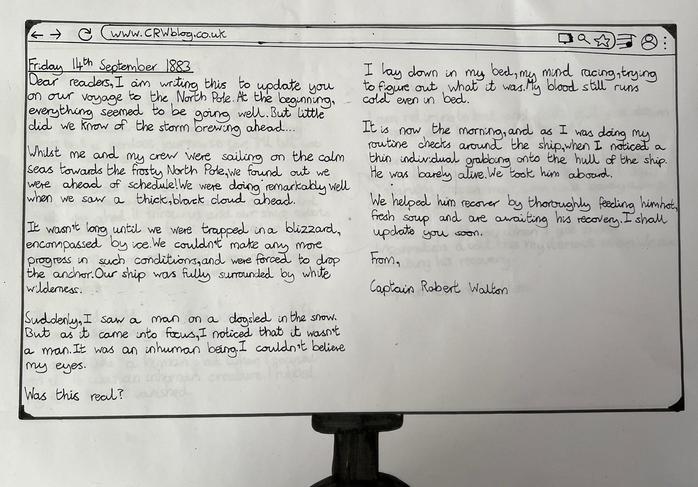 www.CRWblog.co.uk
Friday 14th September 1883
Dear readers, I am writing this to update you
on our voyage to the North Pole. At the beginning,
everything seemed to be going well. But little
did we know of the storm brewing ahead...
Whilst me and my crew were sailing on the calm
seas towards the frosty North Pole, we found out we
were ahead of schedule! We were doing remarkably well
when we saw a thick, black cloud ahead.
It wasn't long until we were trapped in a blizzard,
encompassed by ice. We couldn't make any more
progress in such conditions, and were forced to drop
the anchor. Our ship was fully surrounded by white
wilderness.
Suddenly, I saw a man on a dogsled in the snow.
But as it came into focus, I noticed that it wasn't
a man. It was an inhuman being. I couldn't believe
my eyes.
Was this real?
I lay down in my bed, my mind racing, trying
to figure out what it was. My blood still runs
cold even in bed.
It is now the morning, and as I was doing my
routine checks around the ship, when I noticed a
thin individual grabbing onto the hull of the ship.
He was barely alive. We took him aboard.
We helped him recover by thoroughly feeding him hot,
fresh soup and are awaiting his recovery. I shall
update you soon.
From,
Captain Robert Walton